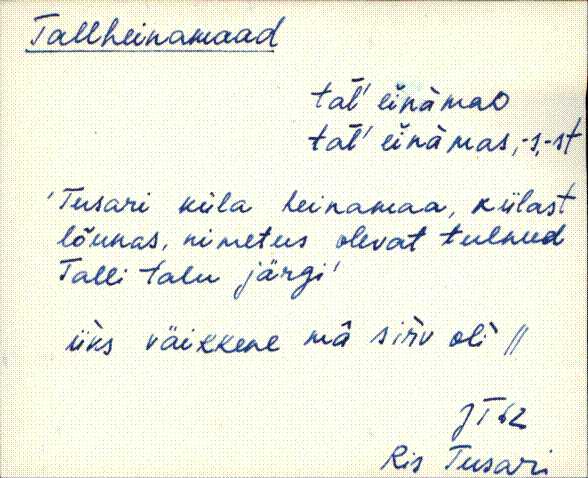 Tallheinamaad
tal̄' einämaD
tal̄' einämas, -s, -st
'Tusari küla heinamaa, külast
lõunas, nimetus olevat tulnud
Talli talu järgi'
üks väikkene mā sirv oli //
JT 62
Ris Tusari